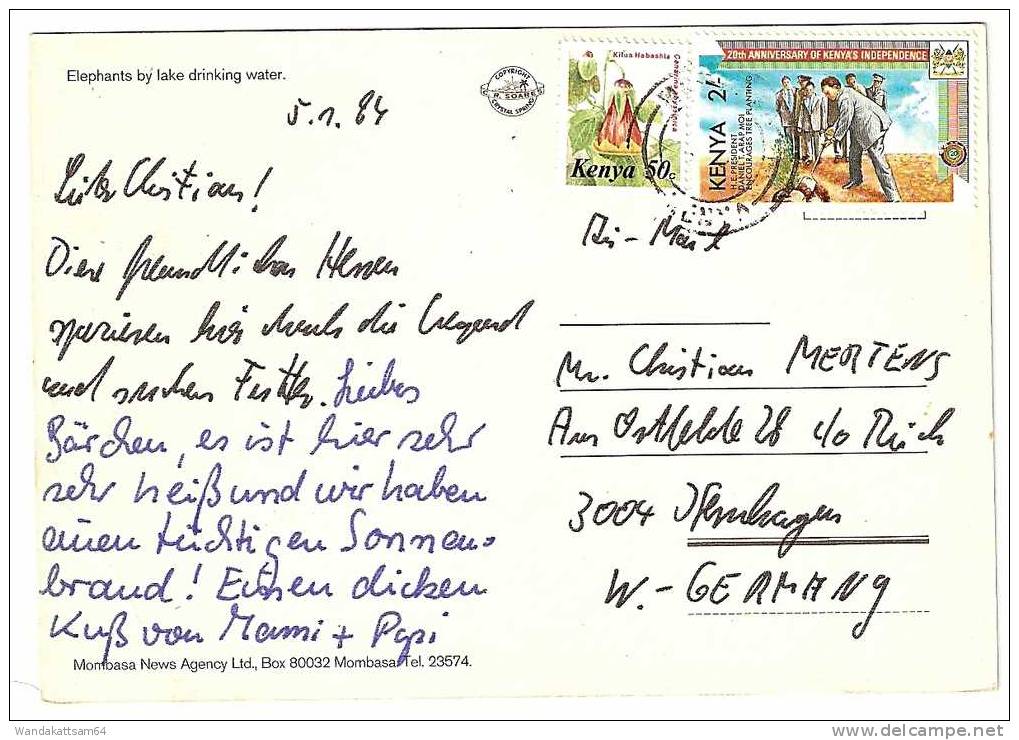 Elephants by lake drinking water.
COPYRIGHT
CRYSTAL SPRINGS
Kifua Habashia
Kenya 50c
20th ANNIVERSARY OF KENYA'S INDEPENDENCE
KENYA 2/-
H.E. PRESIDENT
DANIEL T. ARAP MOI
ENCOURAGES TREE PLANTING
5.1.84
Lieber Christian!
Diese freundlichen Herren
spazieren hier durch die Gegend
und suchen Futter. Liebes
Bärchen, es ist hier sehr
sehr heiß und wir haben
einen tüchtigen Sonnen-
brand! Einen dicken
Kuß von Mami + Papi
Air-Mail
Mr. Christian MERTENS
Am Ostfelde 28 c/o
3004 Isernhagen
W.-GERMANY
Mombasa News Agency Ltd., Box 80032 Mombasa. Tel. 23574.
Wandakattsam64
www.delcampe.net